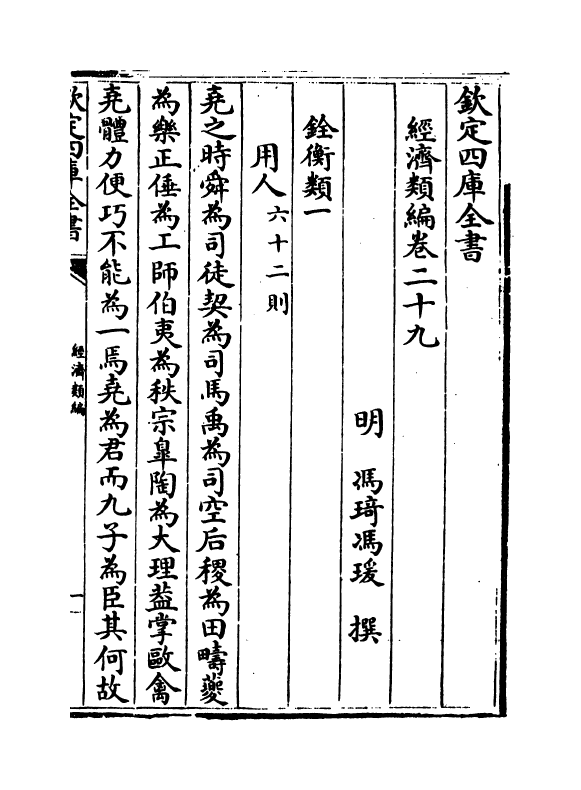 欽定四庫全書
經濟類編卷二十九
明　馮琦馮瑗　撰
銓衡類一
用人六十二則
堯之時舜為司徒契為司馬禹為司空后稷為田疇夔
為樂正倕為工師伯夷為秩宗臯陶為大理益掌敺禽
堯體力便巧不能為一焉堯為君而九子為臣其何故
欽定四庫全書
經濟類編
一